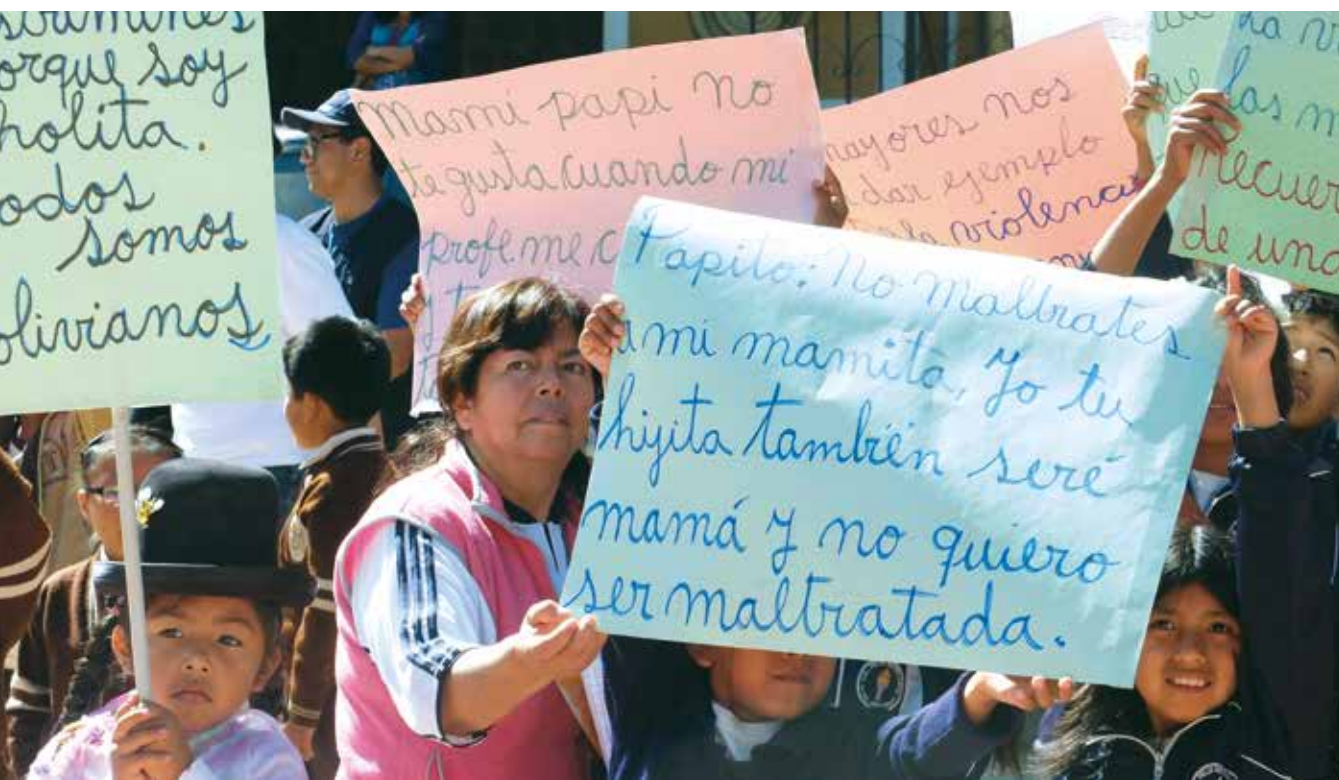 orque soy
holita.
odos
somos
olivianos
Mami papi no
te gusta cuando mi
profe me
mayores nos
dar ejemplo
violencia
Papito: No maltrates
a mi mamita, Yo tu
hijita también seré
mamá y no quiero
ser maltratada.
las m
Recuer
de una